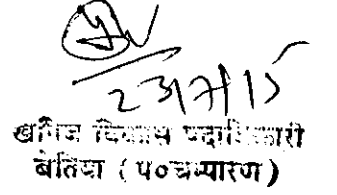 23/7/15
खनिज विकास पदाधिकारी
बेतिया (प०चम्पारण)